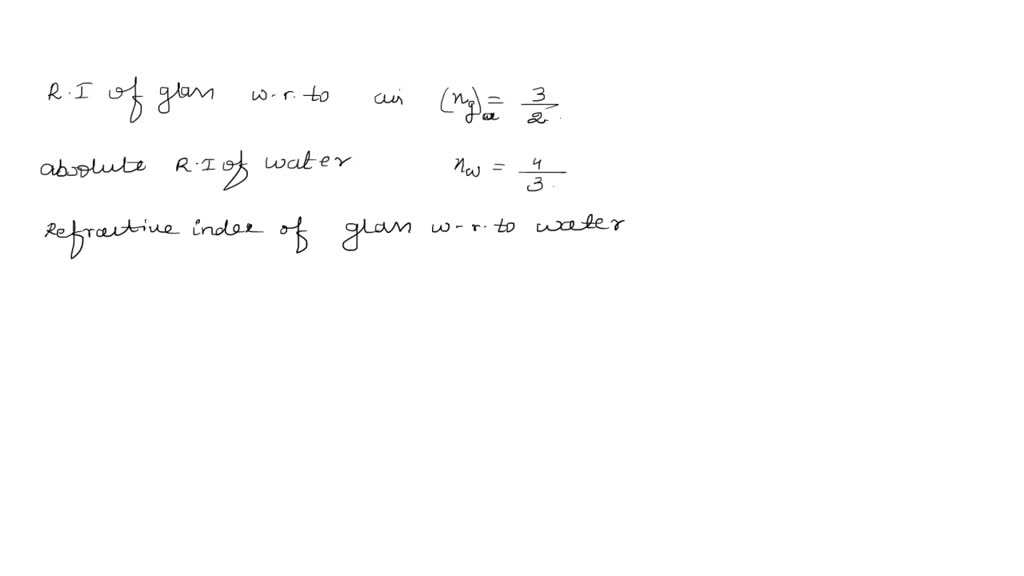 R.I of glass w.r.to air (ng)a = 3/2
absolute R.I of water nw = 4/3
Refractive index of glass w.r.to water